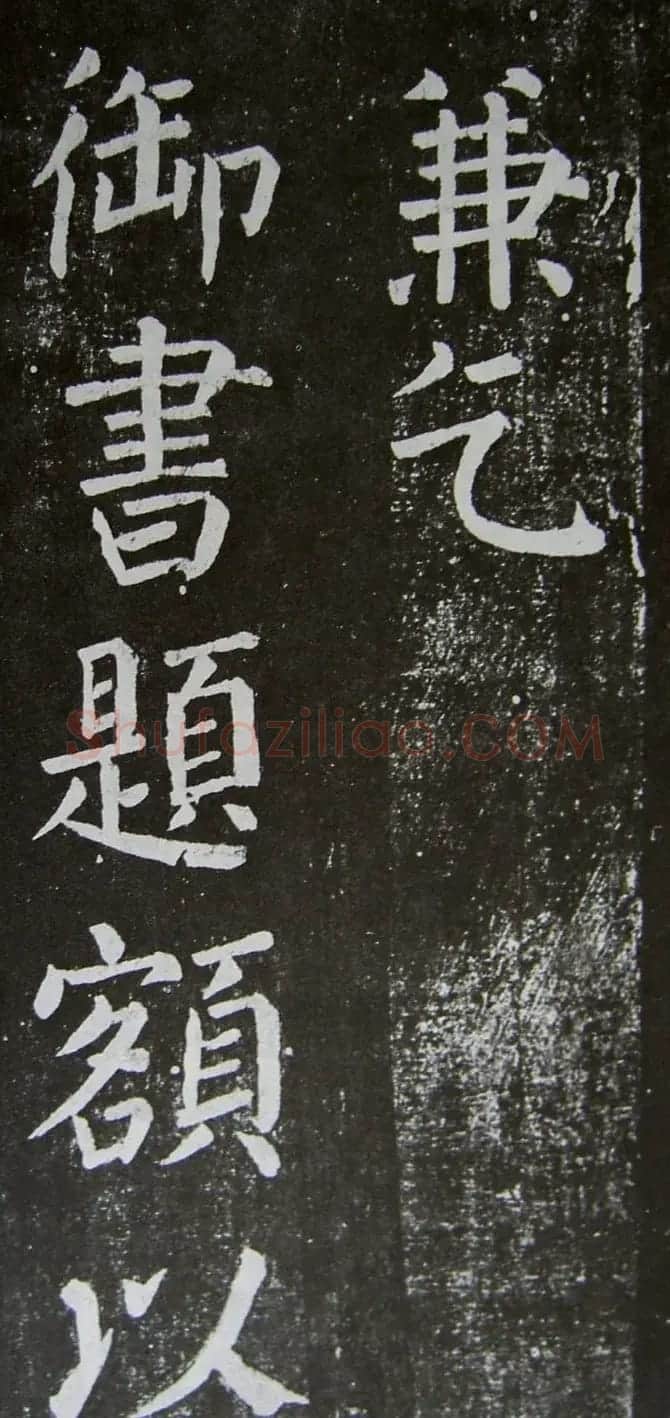 兼乞
御書題額以
Shufaziliao.COM